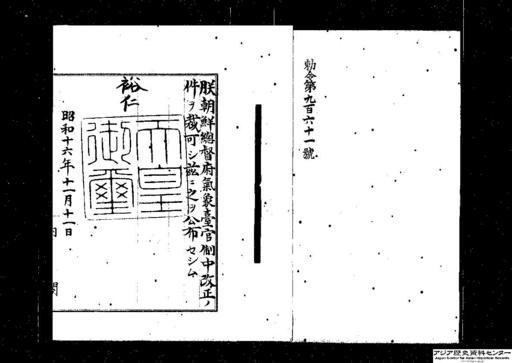 勅令第九百六十一號
朕朝鮮總督府氣象臺官制中改正ノ
件ヲ裁可シ茲ニ之ヲ公布セシム
裕仁
天皇
御璽
昭和十六年十一月十一日
内閣
アジア歴史資料センター
Japan Center for Asian Historical Records